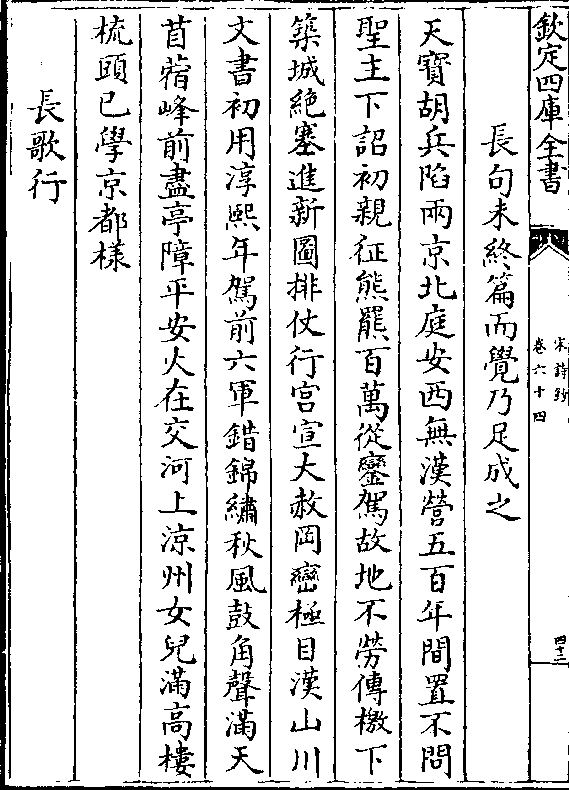 欽定四庫全書
宋詩鈔
卷六十四
四十三
長句未終篇而覺乃足成之
天寶胡兵陷兩京北庭安西無漢營五百年間置不問
聖主下詔初親征熊羆百萬從鑾駕故地不勞傳檄下
築城絶塞進新圖排仗行宮宣大赦岡巒極目漢山川
文書初用淳熙年駕前六軍錯錦繡秋風鼓角聲滿天
苜蓿峰前盡亭障平安火在交河上涼州女兒滿高樓
梳頭已學京都樣
長歌行